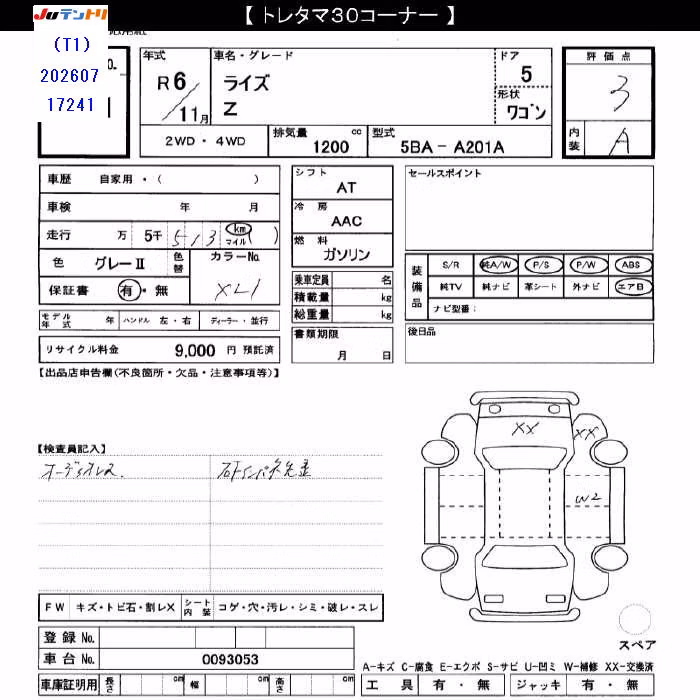 【 トレタマ30コーナー 】
JUテントリ
(T1)
202607
17241
年式 車名・グレード ドア 評価点
R6/11月 ライズ 5 3
Z 形状 ワゴン
2WD・4WD 排気量 1200 cc 型式 5BA - A201A 内装 A
車歴 自家用・( )
シフト AT
セールスポイント
車検 年 月
冷房 AAC
走行 万 5千 513 km マイル ( )
燃料 ガソリン
色 グレーⅡ 色替 カラーNo. XL1
装備品 S/R 純A/W P/S P/W ABS
保証書 有・無
乗車定員 名
純TV 純ナビ 革シート 外ナビ エアB
積載量 kg
ナビ型番:
総重量 kg
モデル年式 年 ハンドル 左・右 ディーラー・並行
書類期限 月 日
後日品
リサイクル料金 9,000 円 預託済
【出品店申告欄(不良箇所・欠品・注意事項等)】
XX XX
【検査員記入】
オーディオレス.
W2
FW キズ・トビ石・割レX シート内装 コゲ・穴・汚レ・シミ・破レ・スレ
スペア
登録 No.
車台 No. 0093053
A-キズ C-腐食 E-エクボ S-サビ U-凹ミ W-補修 XX-交換済
車庫証明用 長さ cm 幅 cm 高さ cm 工具 有・無 ジャッキ 有・無